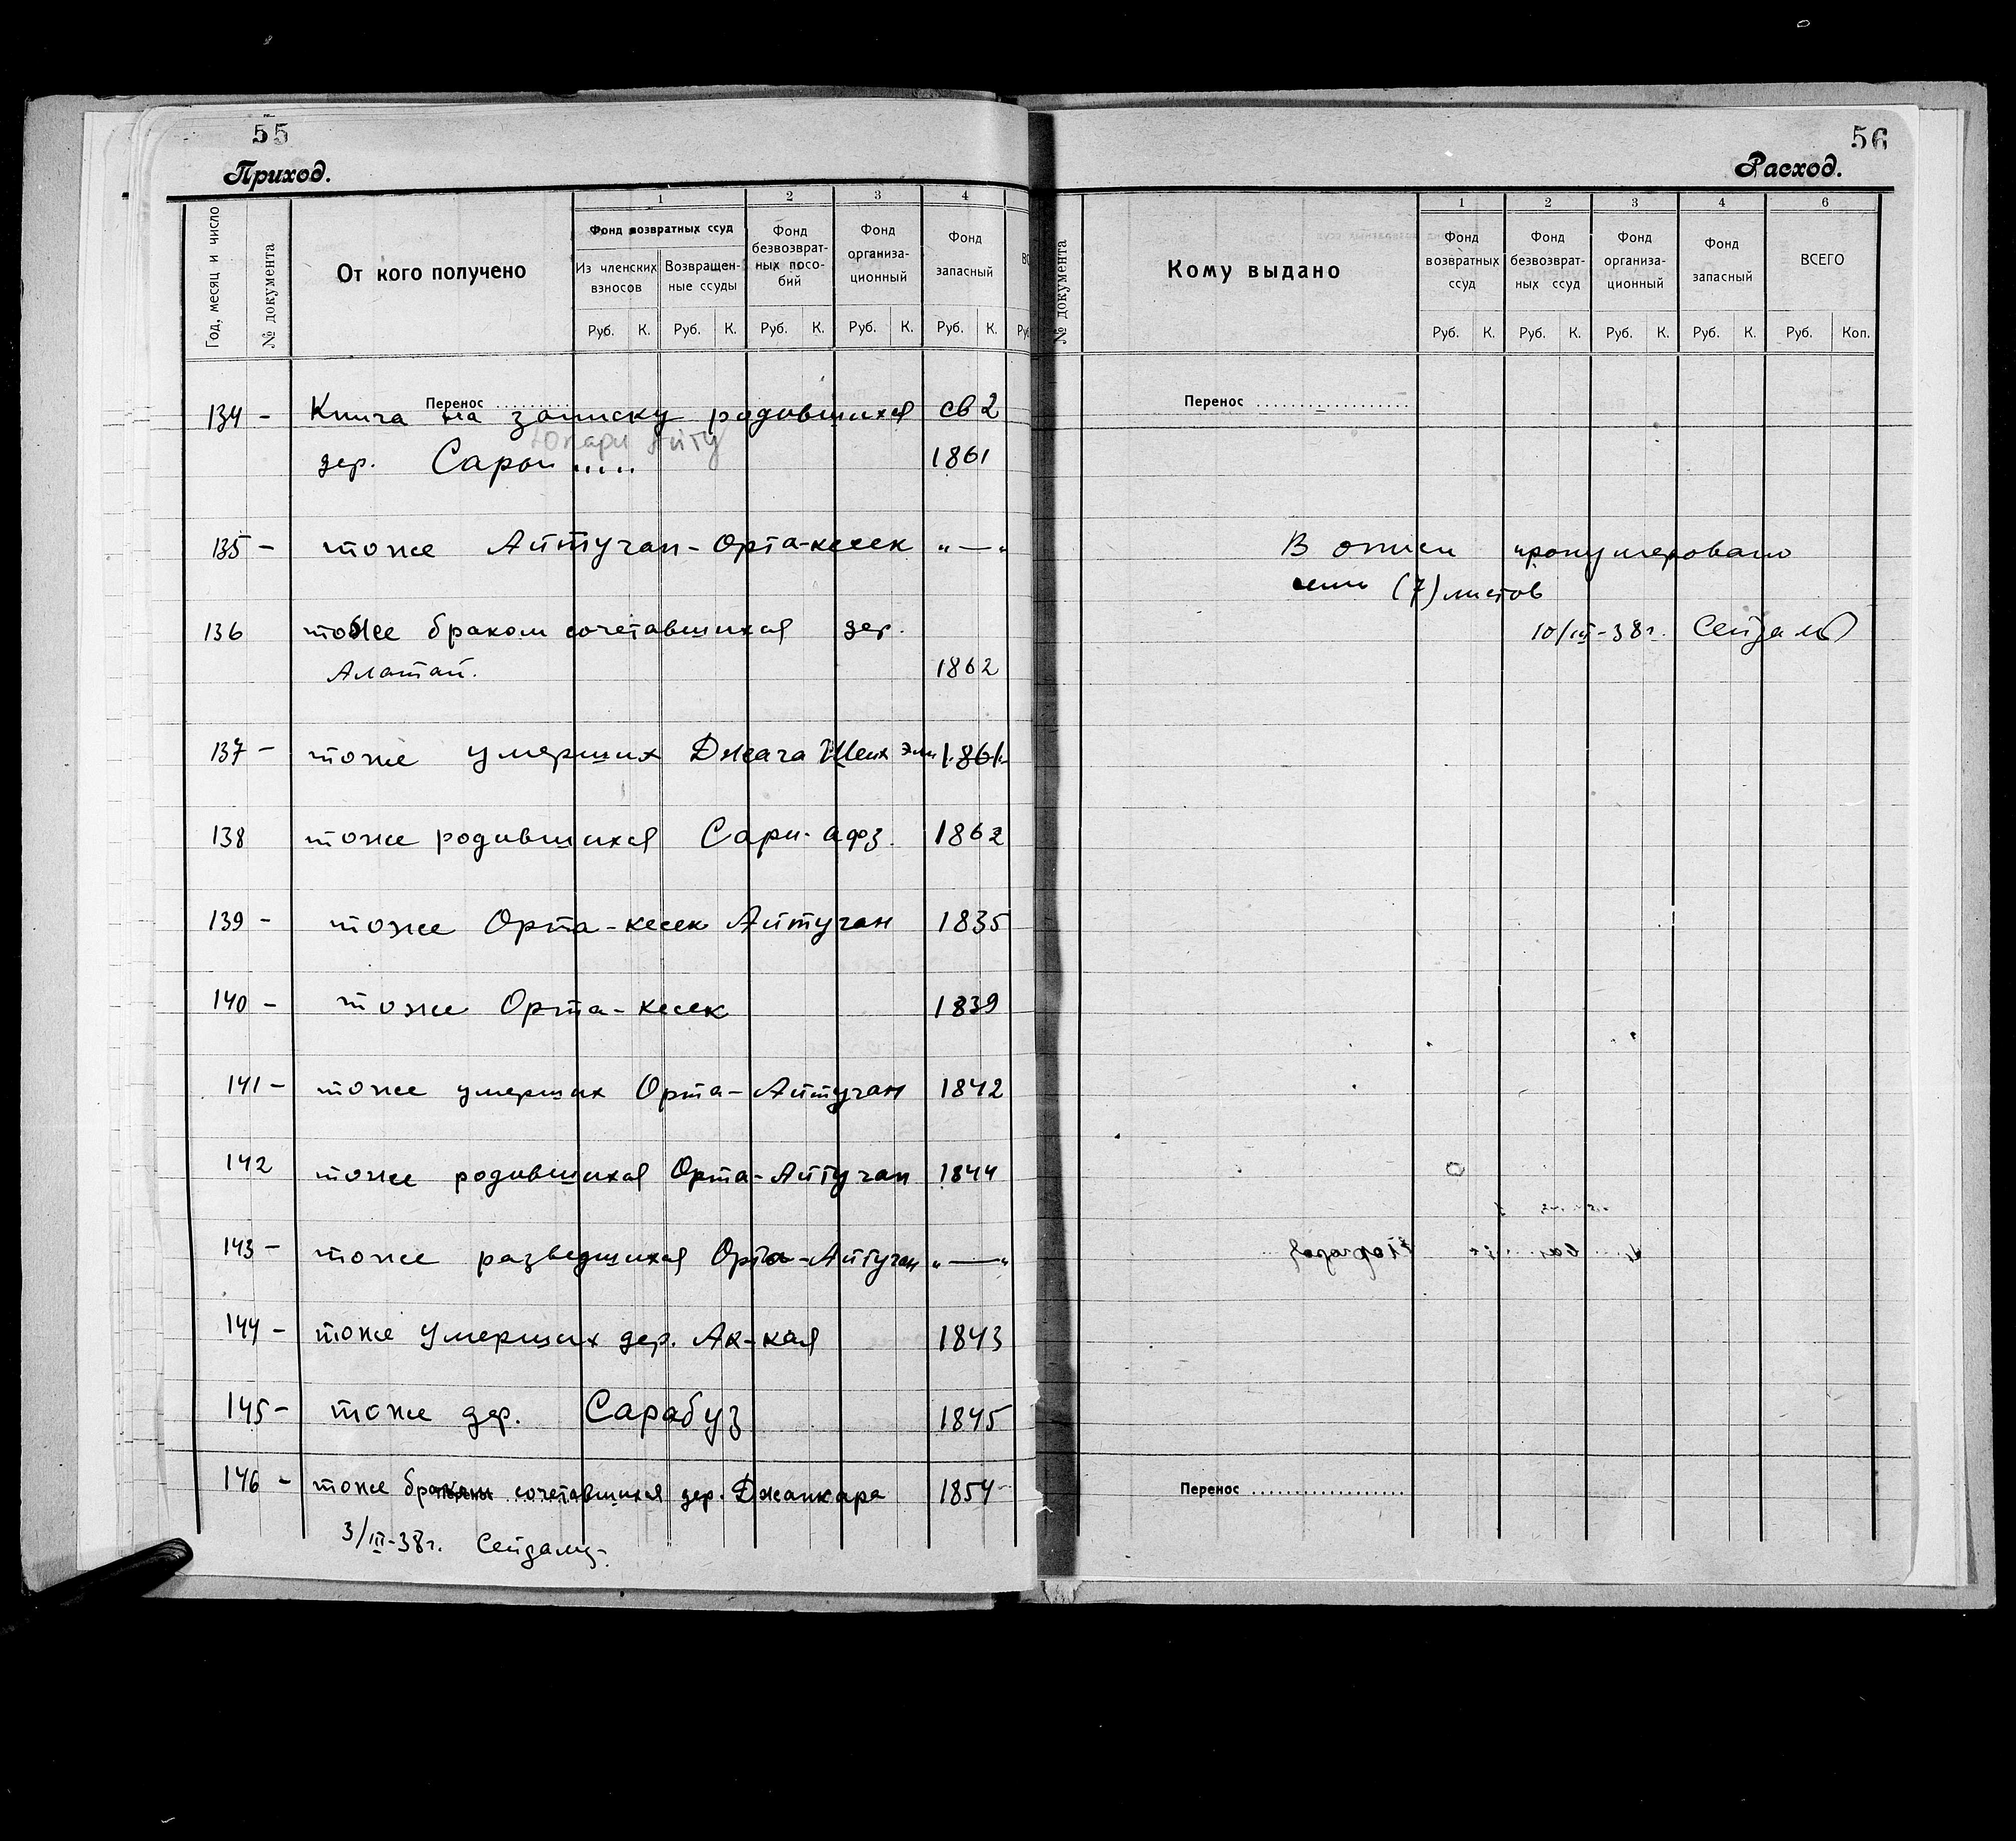 55
Приход.
Год, месяц и число
№ документа
От кого получено
1
2
3
4
Фонд возвратных ссуд
Из членских взносов
Возвращен-
ные ссуды
Фонд
безвозврат-
ных посо-
бий
Фонд
организа-
ционный
Фонд
запасный
Руб. К. Руб. К. Руб. К. Руб. К. Руб. К.
Перенос
134 - Книга на записку родившихся св 2
Юкари Айту
дер. Сарои ..... 1861
135 - тоже Айтуган-Орта-кесек "—"
136 тоже браком сочетавшихся дер.
Алатай. 1862
137 - тоже умерших Джага Шеих Эли 1861
138 тоже родившихся Сари-афз. 1862
139 - тоже Орта-кесек Айтуган 1835
140 - тоже Орта-кесек 1839
141 - тоже умерших Орта-Айтуган 1842
142 тоже родившихся Орта-Айтуган 1844
143 - тоже разведшихся Орта-Айтуган "—"
144 - тоже умерших дер. Ак-кая 1843
145 - тоже дер. Сарабуз 1845
146 - тоже браком сочетавшихся дер. Джанкара 1854
Перенос
3/III-38г. Сейдаму
56
Расход.
№ документа
Кому выдано
1
2
3
4
6
Фонд
возвратных
ссуд
Фонд
безвозврат-
ных ссуд
Фонд
организа-
ционный
Фонд
запасный
ВСЕГО
Руб. К. Руб. К. Руб. К. Руб. К. Руб. Коп.
Перенос
В описи пронумеровано
семь (7) листов
10/III-38г.
Перенос